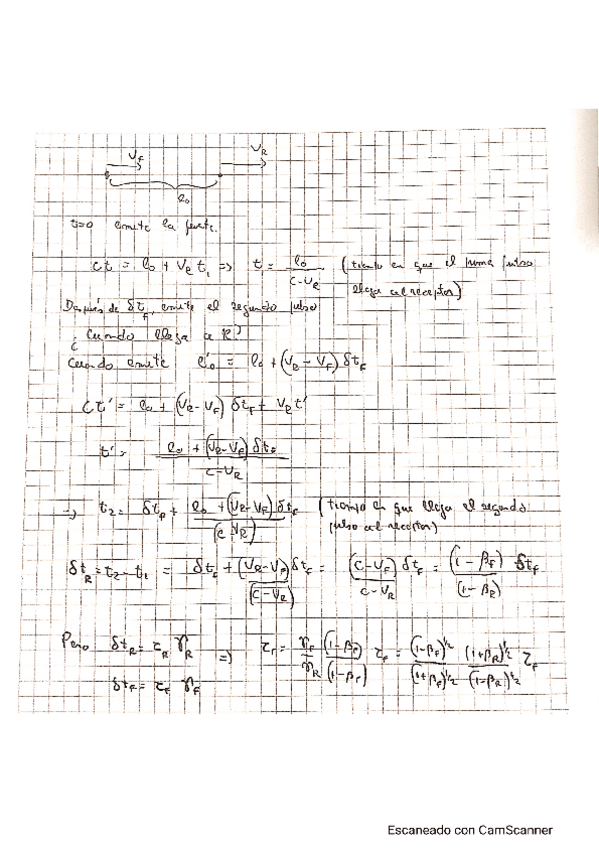 V_F V_R
l_0
t=0 emite la fuente.
ct = l_0 + V_R t_1 => t = l_0 / (c-V_R) (tiempo en que el primer pulso
llega al receptor)
Después de δt_F, emite el segundo pulso
¿Cuando llega a R?
Cuando emite l'_0 = l_0 + (V_R - V_F) δt_F
ct' = l_0 + (V_R - V_F) δt_F + V_R t'
t' = (l_0 + (V_R - V_F) δt_F) / (c-V_R)
→ t_2 = δt_F + (l_0 + (V_R - V_F) δt_F) / (c-V_R) (tiempo en que llega el segundo
pulso al receptor)
δt_R = t_2 - t_1 = δt_F + (V_R - V_F) δt_F / (c-V_R) = (c-V_F) / (c-V_R) δt_F = (1-β_F) / (1-β_R) δt_F
Pero δt_R = τ_R γ_R => τ_r = γ_F / γ_R (1-β_F) / (1-β_r) τ_F = (1-β_F)^1/2 / (1+β_F)^1/2 (1+β_R)^1/2 / (1-β_R)^1/2 τ_F
δt_F = τ_F γ_F
Escaneado con CamScanner